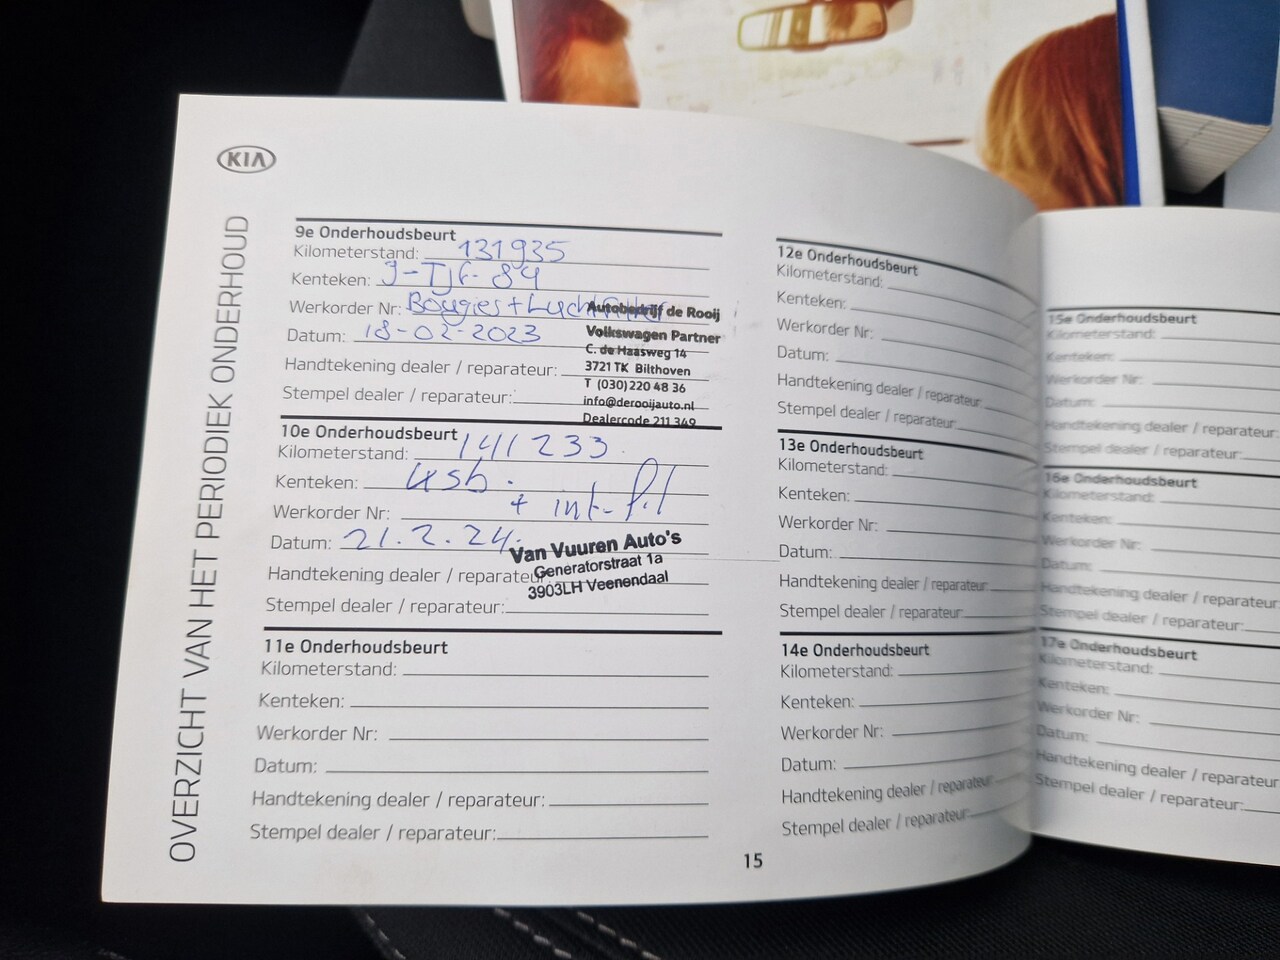 KIA
OVERZICHT VAN HET PERIODIEK ONDERHOUD
9e Onderhoudsbeurt
Kilometerstand: 131935
Kenteken: J-TJF-84
Werkorder Nr: Bougies + Luchtfilter
Datum: 18-02-2023
Handtekening dealer / reparateur:
Stempel dealer / reparateur:
Autobedrijf de Rooij
Volkswagen Partner
C. de Haasweg 14
3721 TK Bilthoven
T (030) 220 48 36
info@derooijauto.nl
Dealercode 211 349
10e Onderhoudsbeurt
Kilometerstand: 141233
Kenteken:
+ int-fil
Werkorder Nr:
Datum: 21.2.24.
Handtekening dealer / reparateur:
Stempel dealer / reparateur:
Van Vuuren Auto's
Generatorstraat 1a
3903LH Veenendaal
11e Onderhoudsbeurt
Kilometerstand:
Kenteken:
Werkorder Nr:
Datum:
Handtekening dealer / reparateur:
Stempel dealer / reparateur:
12e Onderhoudsbeurt
Kilometerstand:
Kenteken:
Werkorder Nr:
Datum:
Handtekening dealer / reparateur:
Stempel dealer / reparateur:
13e Onderhoudsbeurt
Kilometerstand:
Kenteken:
Werkorder Nr:
Datum:
Handtekening dealer / reparateur:
Stempel dealer / reparateur:
14e Onderhoudsbeurt
Kilometerstand:
Kenteken:
Werkorder Nr:
Datum:
Handtekening dealer / reparateur:
Stempel dealer / reparateur:
15
15e Onderhoudsbeurt
Kilometerstand:
Kenteken:
Werkorder Nr:
Datum:
Handtekening dealer / reparateur:
Stempel dealer / reparateur:
16e Onderhoudsbeurt
Kilometerstand:
Kenteken:
Werkorder Nr:
Datum:
Handtekening dealer / reparateur:
Stempel dealer / reparateur:
17e Onderhoudsbeurt
Kilometerstand:
Kenteken:
Werkorder Nr:
Datum:
Handtekening dealer / reparateur:
Stempel dealer / reparateur: